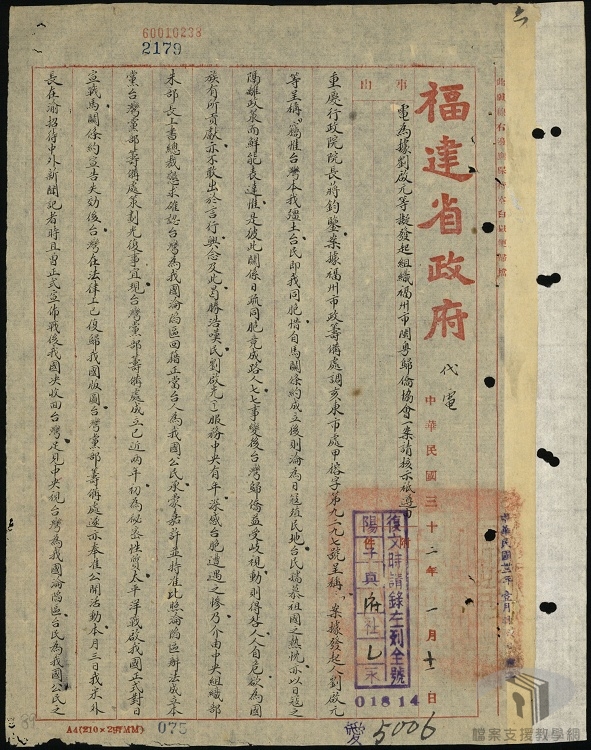 60010238
2179
福建省政府
代電
中華民國三十二年一月十一日
事由
電為據劉啟光等擬發起組織福州市閩粵歸僑協會一案請核示祗遵由
附件
重慶行政院院長蔣鈞鑒案據福州市政籌備處調亥東市處甲榕字第九二九七號呈稱「案據發起人劉啟光
等呈稱「竊惟台灣本我疆土台民即我同胞惜自馬關條約成立後則淪為日寇殖民地台民孺慕祖國之熱忱亦以日寇之
陽離政策而鮮能表達惟是彼此關係日疏同胞竟成路人七七事變後台灣歸僑益受歧視動則得咎人人自危欲為國
族有所貢獻亦不敢出於言行興念及此曷勝浩嘆民劉啟光(一)服務中央有年深感台胞遭遇之慘乃介由中央組織部
朱部長上書總裁懇求確認台灣為我國淪陷區回籍正當台人為我國公民承蒙嘉許並特准比照淪陷區辦法成立本
黨台灣黨部籌備處策劃光復事宜現台灣黨部籌備處成立已近兩年初為秘密性質太平洋戰啟我國正式對日
宣戰馬關條約宣告失効後台灣在法律上已復歸我國版圖台灣黨部籌備處遂亦奉准公開活動本月三日我宋外
長在渝招待中外新聞記者時且曾正式宣佈戰後我國決收回台灣足見中央視台灣為我國淪陷區台民為我國公民之
復文時請錄左列全號
陽子真府社乙永
01814
愛 5006
A4(210×297MM)
075
89
檔案支援教學網